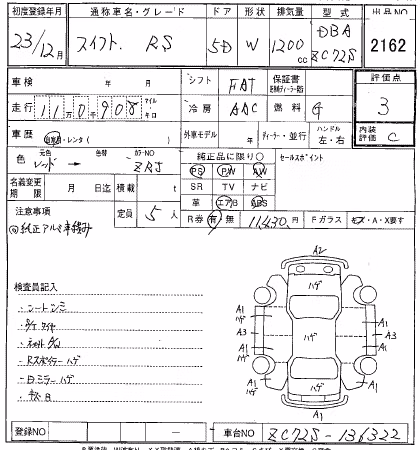 初度登録年月 通称車名・グレード ドア 形状 排気量 型式 出品NO
23/12月 スイフト. RS 5D W 1200cc DBA ZC72S 2162
車検 年 月 シフト FAT 保証書 評価点
走行 11万0千908 マイル キロ 冷房 AAC 燃料 G 3
車歴 自家用・レンタ( ) 外車モデル 年 ディーラー・並行 ハンドル 左・右 内装評価 C
色 元色 レッド → 色替 カラーNO ZRJ 純正品に限り○ セールスポイント
名義変更期限 月 日迄 積載 t PS PW AW
SR TV ナビ
注意事項 定員 5人 革 エアB ABS
R券 有・無 11,430.円 Fガラス キズ・A・X要す
純正アルミ車積み
検査員記入
・シートシミ
・ライナーハゲ
・Rスポイラーハゲ
・ドアミラーハゲ
・キズ 凹
A2
ハゲ
A1 ハゲ A1
A3 ハゲ A3
A1 A1
ハゲ
A1
登録NO 車台NO ZC72S-136322